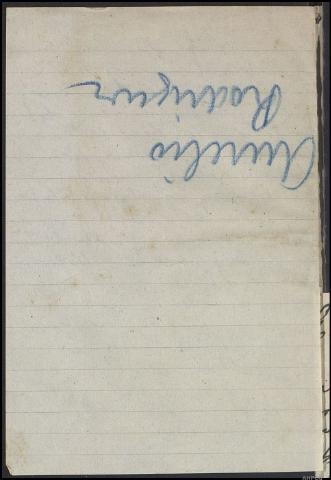 Aurelio
Rodriguez